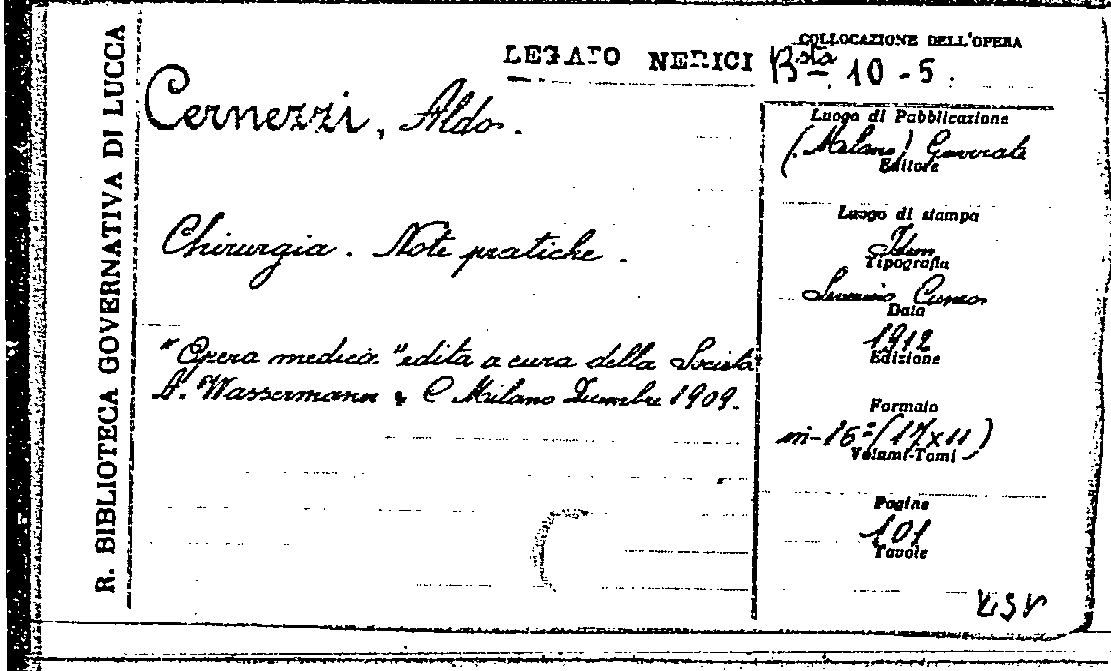 R. BIBLIOTECA GOVERNATIVA DI LUCCA
LEGATO NERICI
COLLOCAZIONE DELL'OPERA
Bsta 10-5.
Cernezzi, Aldo.
Chirurgia. Note pratiche.
"Opera medica" edita a cura della Società
A. Wassermann & C Milano 1909.
Luogo di Pubblicazione
(Milano)
Editore
Luogo di stampa
Idem
Tipografia
Data
1912
Edizione
Formato
in-16° (17x11)
Volumi-Tomi
Pagine
101
Tavole